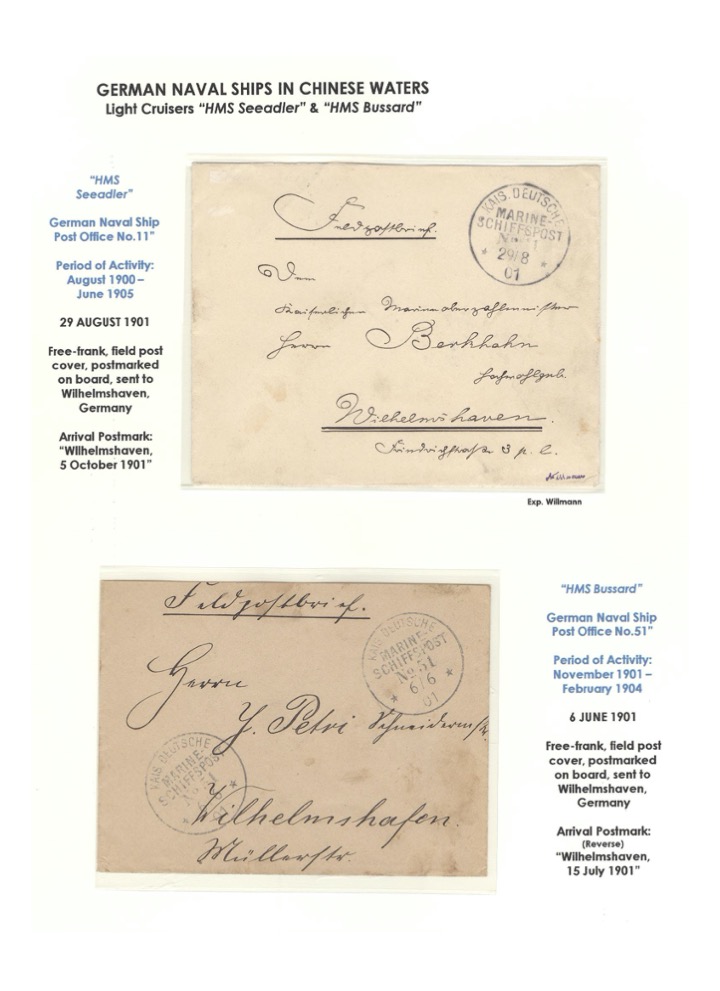 GERMAN NAVAL SHIPS IN CHINESE WATERS
Light Cruisers “HMS Seeadler” & “HMS Bussard”
“HMS
Seeadler”
German Naval Ship
Post Office No.11”
Period of Activity:
August 1900 –
June 1905
29 AUGUST 1901
Free-frank, field post
cover, postmarked
on board, sent to
Wilhelmshaven,
Germany
Arrival Postmark:
“Wilhelmshaven,
5 October 1901”
Feldpostbrief.
KAIS. DEUTSCHE
MARINE-
SCHIFFSPOST
No 11
* 29/8 *
01
Dem
Kaiserlichen Marineoberzahlmeister
Herrn Berkhahn
Hochwohlgeb.
Wilhelmshaven.
Friedrichstraße 3 p. l.
Willmann
Exp. Willmann
Feldpostbrief.
KAIS. DEUTSCHE
MARINE-
SCHIFFSPOST
No 51
* 6/6 *
01
Herrn
J. Petri Schneidermstr.
KAIS. DEUTSCHE
MARINE-
SCHIFFSPOST
No 51
Wilhelmshafen.
Müllerstr.
“HMS Bussard”
German Naval Ship
Post Office No.51”
Period of Activity:
November 1901 –
February 1904
6 JUNE 1901
Free-frank, field post
cover, postmarked
on board, sent to
Wilhelmshaven,
Germany
Arrival Postmark:
(Reverse)
“Wilhelmshaven,
15 July 1901”